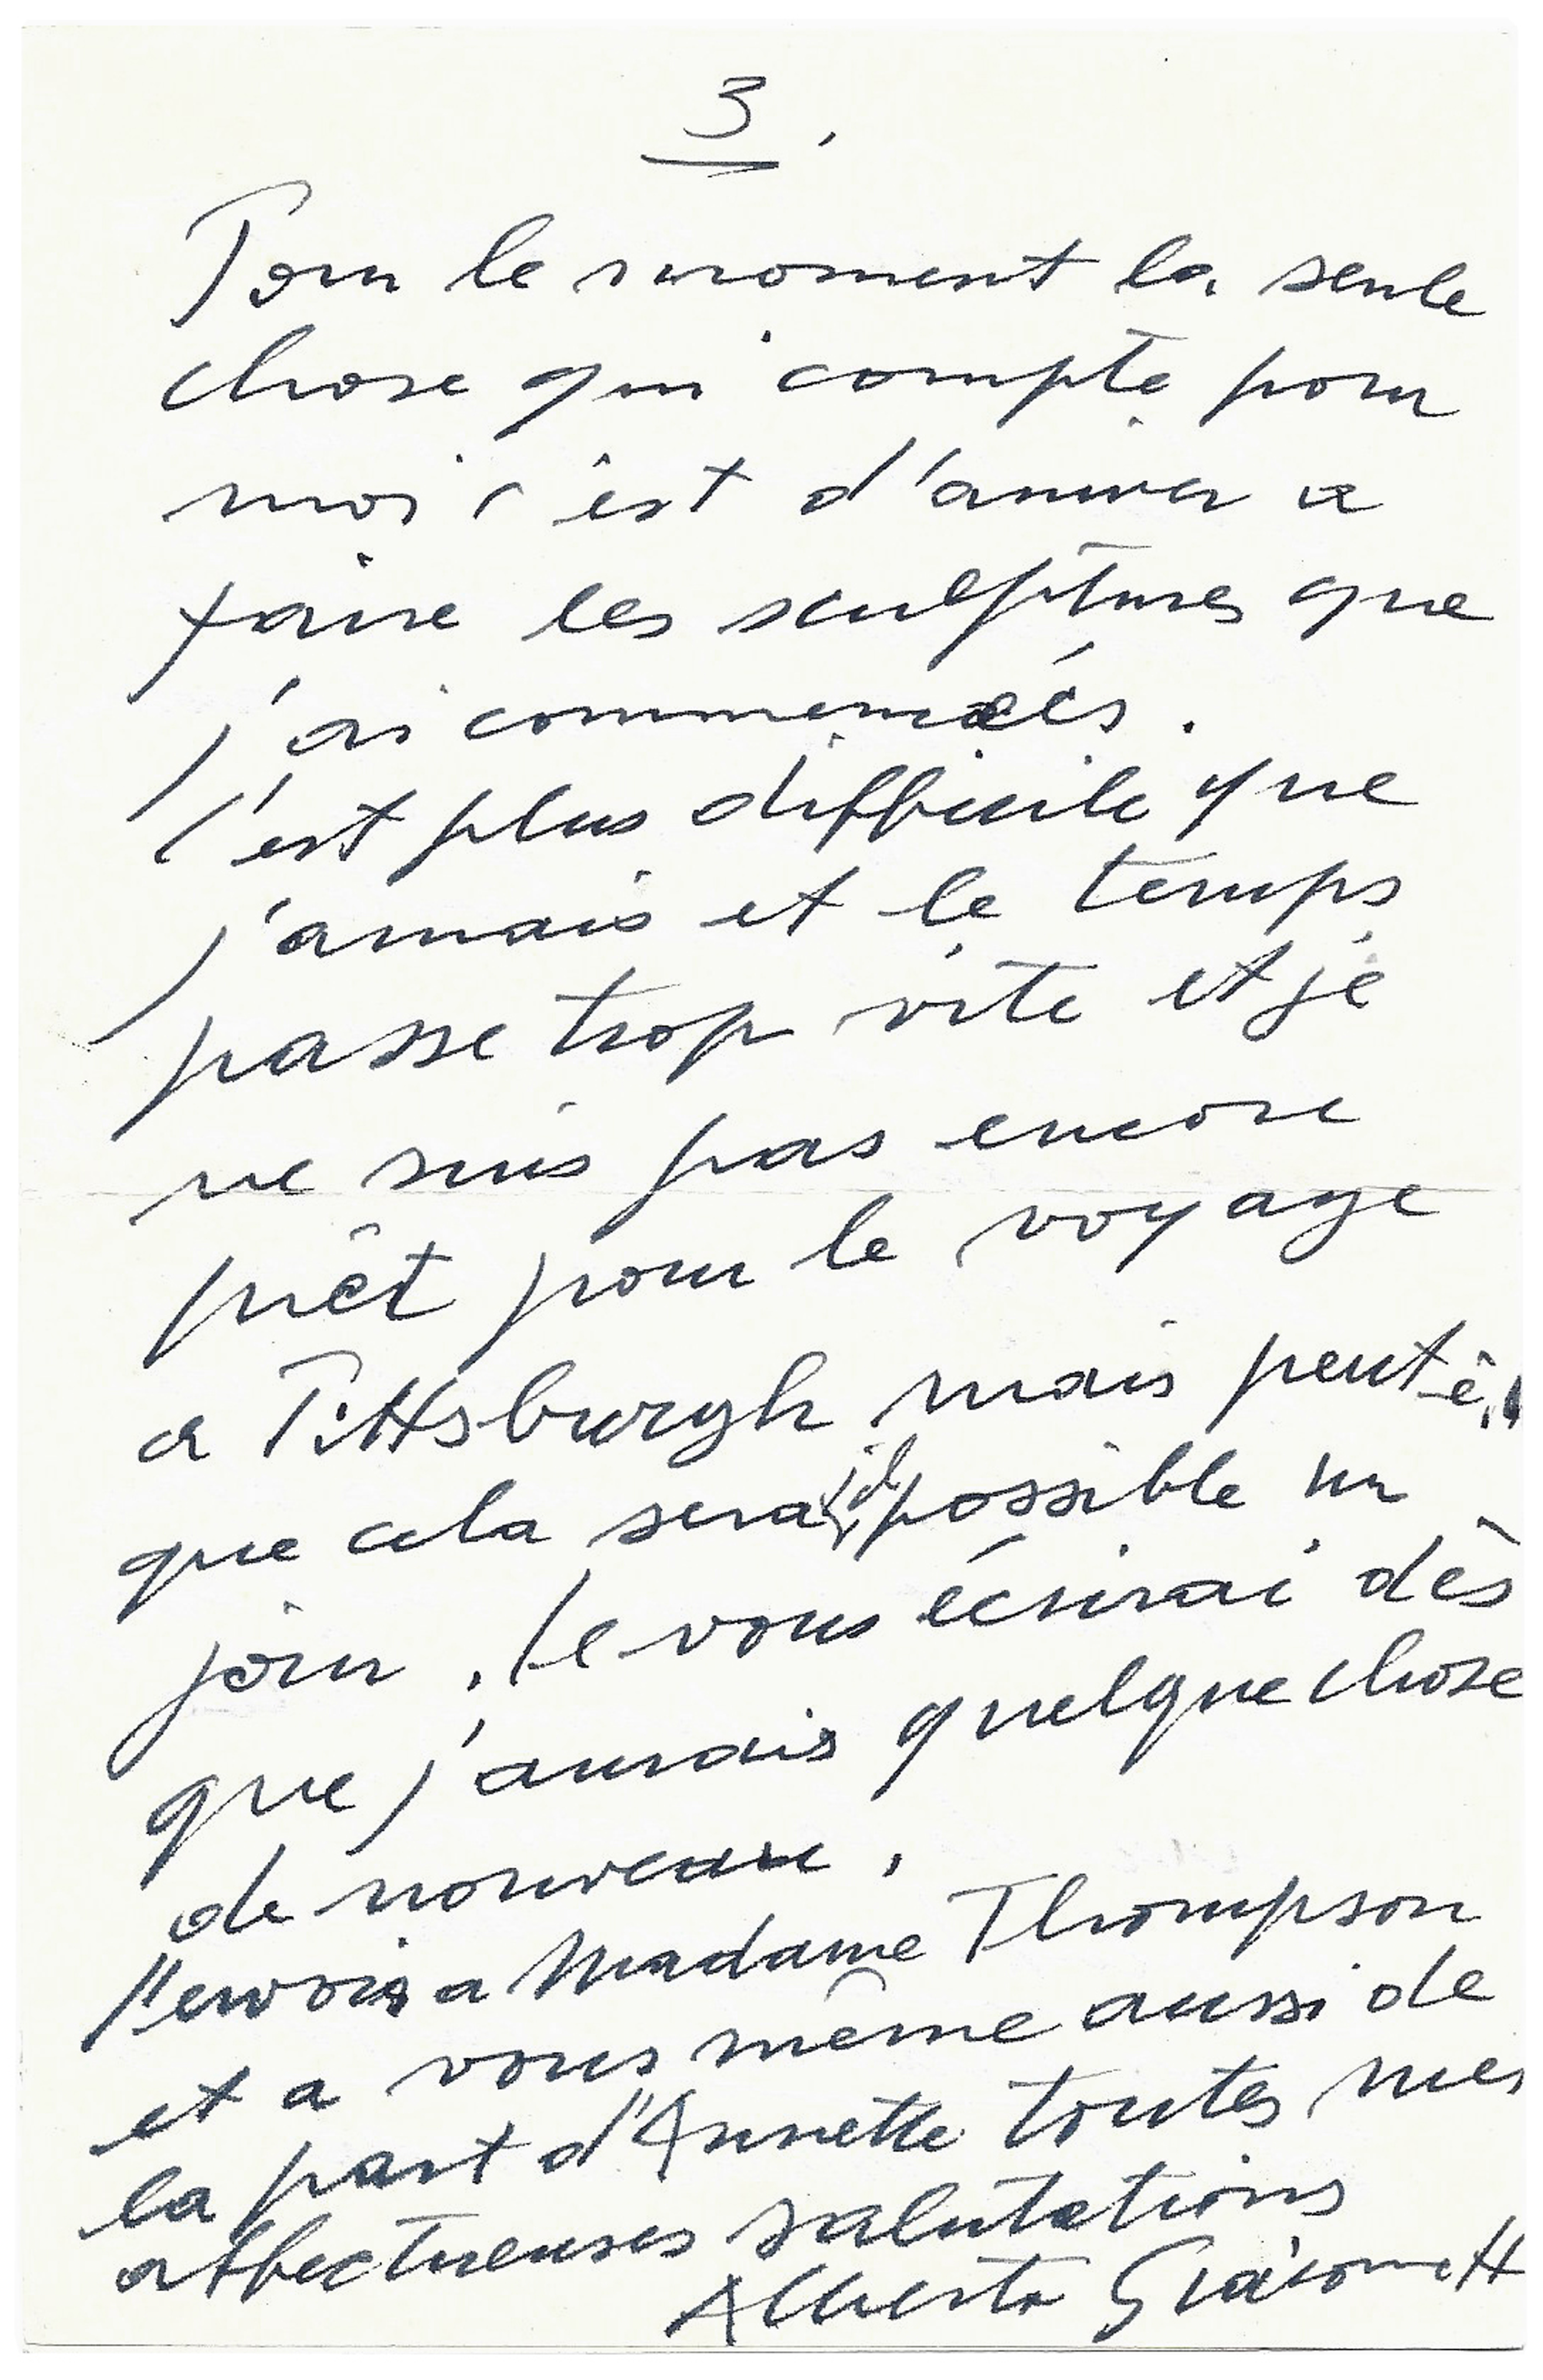 3.
Pour le moment la seule
chose qui compte pour
moi c'est d'arriver a
faire les sculptures que
j'ai commencés.
C'est plus difficile que
jamais et le temps
passe trop vite et je
ne suis pas encore
prêt pour le voyage
a Pittsburgh mais peut
que cela sera possible un
jour. Je vous écrirai dès
que j'aurais quelque chose
de nouveau.
J'envois a Madame Thompson
et a vous même aussi de
la part d'Annette toutes mes
affectueuses salutations
Alberto Giacometti